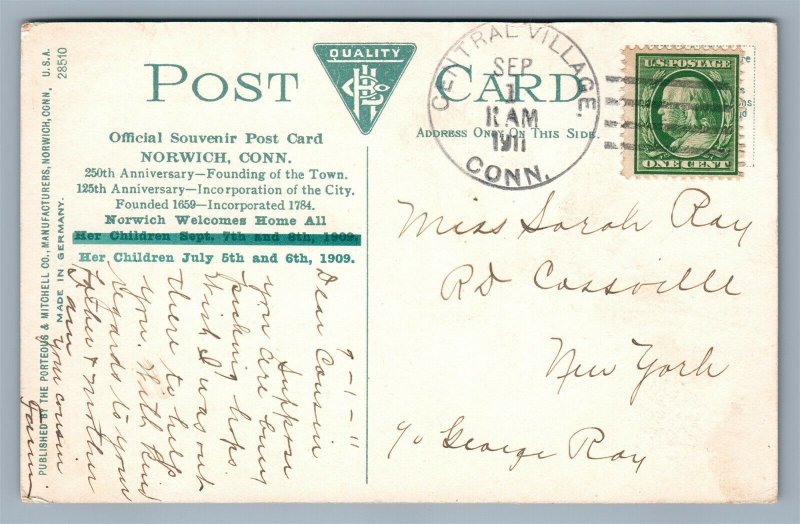 PUBLISHED BY THE PORTEOUS & MITCHELL CO., MANUFACTURERS, NORWICH, CONN., U.S.A.
MADE IN GERMANY.
28510
POST CARD
QUALITY
Official Souvenir Post Card
NORWICH, CONN.
250th Anniversary—Founding of the Town.
125th Anniversary—Incorporation of the City.
Founded 1659—Incorporated 1784.
Norwich Welcomes Home All
Her Children Sept. 7th and 8th, 1909.
Her Children July 5th and 6th, 1909.
ADDRESS ONLY ON THIS SIDE.
CENTRAL VILLAGE,
SEP
1
AM
1911
CONN.
U.S. POSTAGE
ONE CENT
9-1-"11
Dear Cousin
Suppose
you are busy
picking hops.
Wish I was out
there to help
you. With kind
regards to your
Father & mother
I am your cousin
Miss Sarah Ray
RD Cossville
New York
c/o George Ray